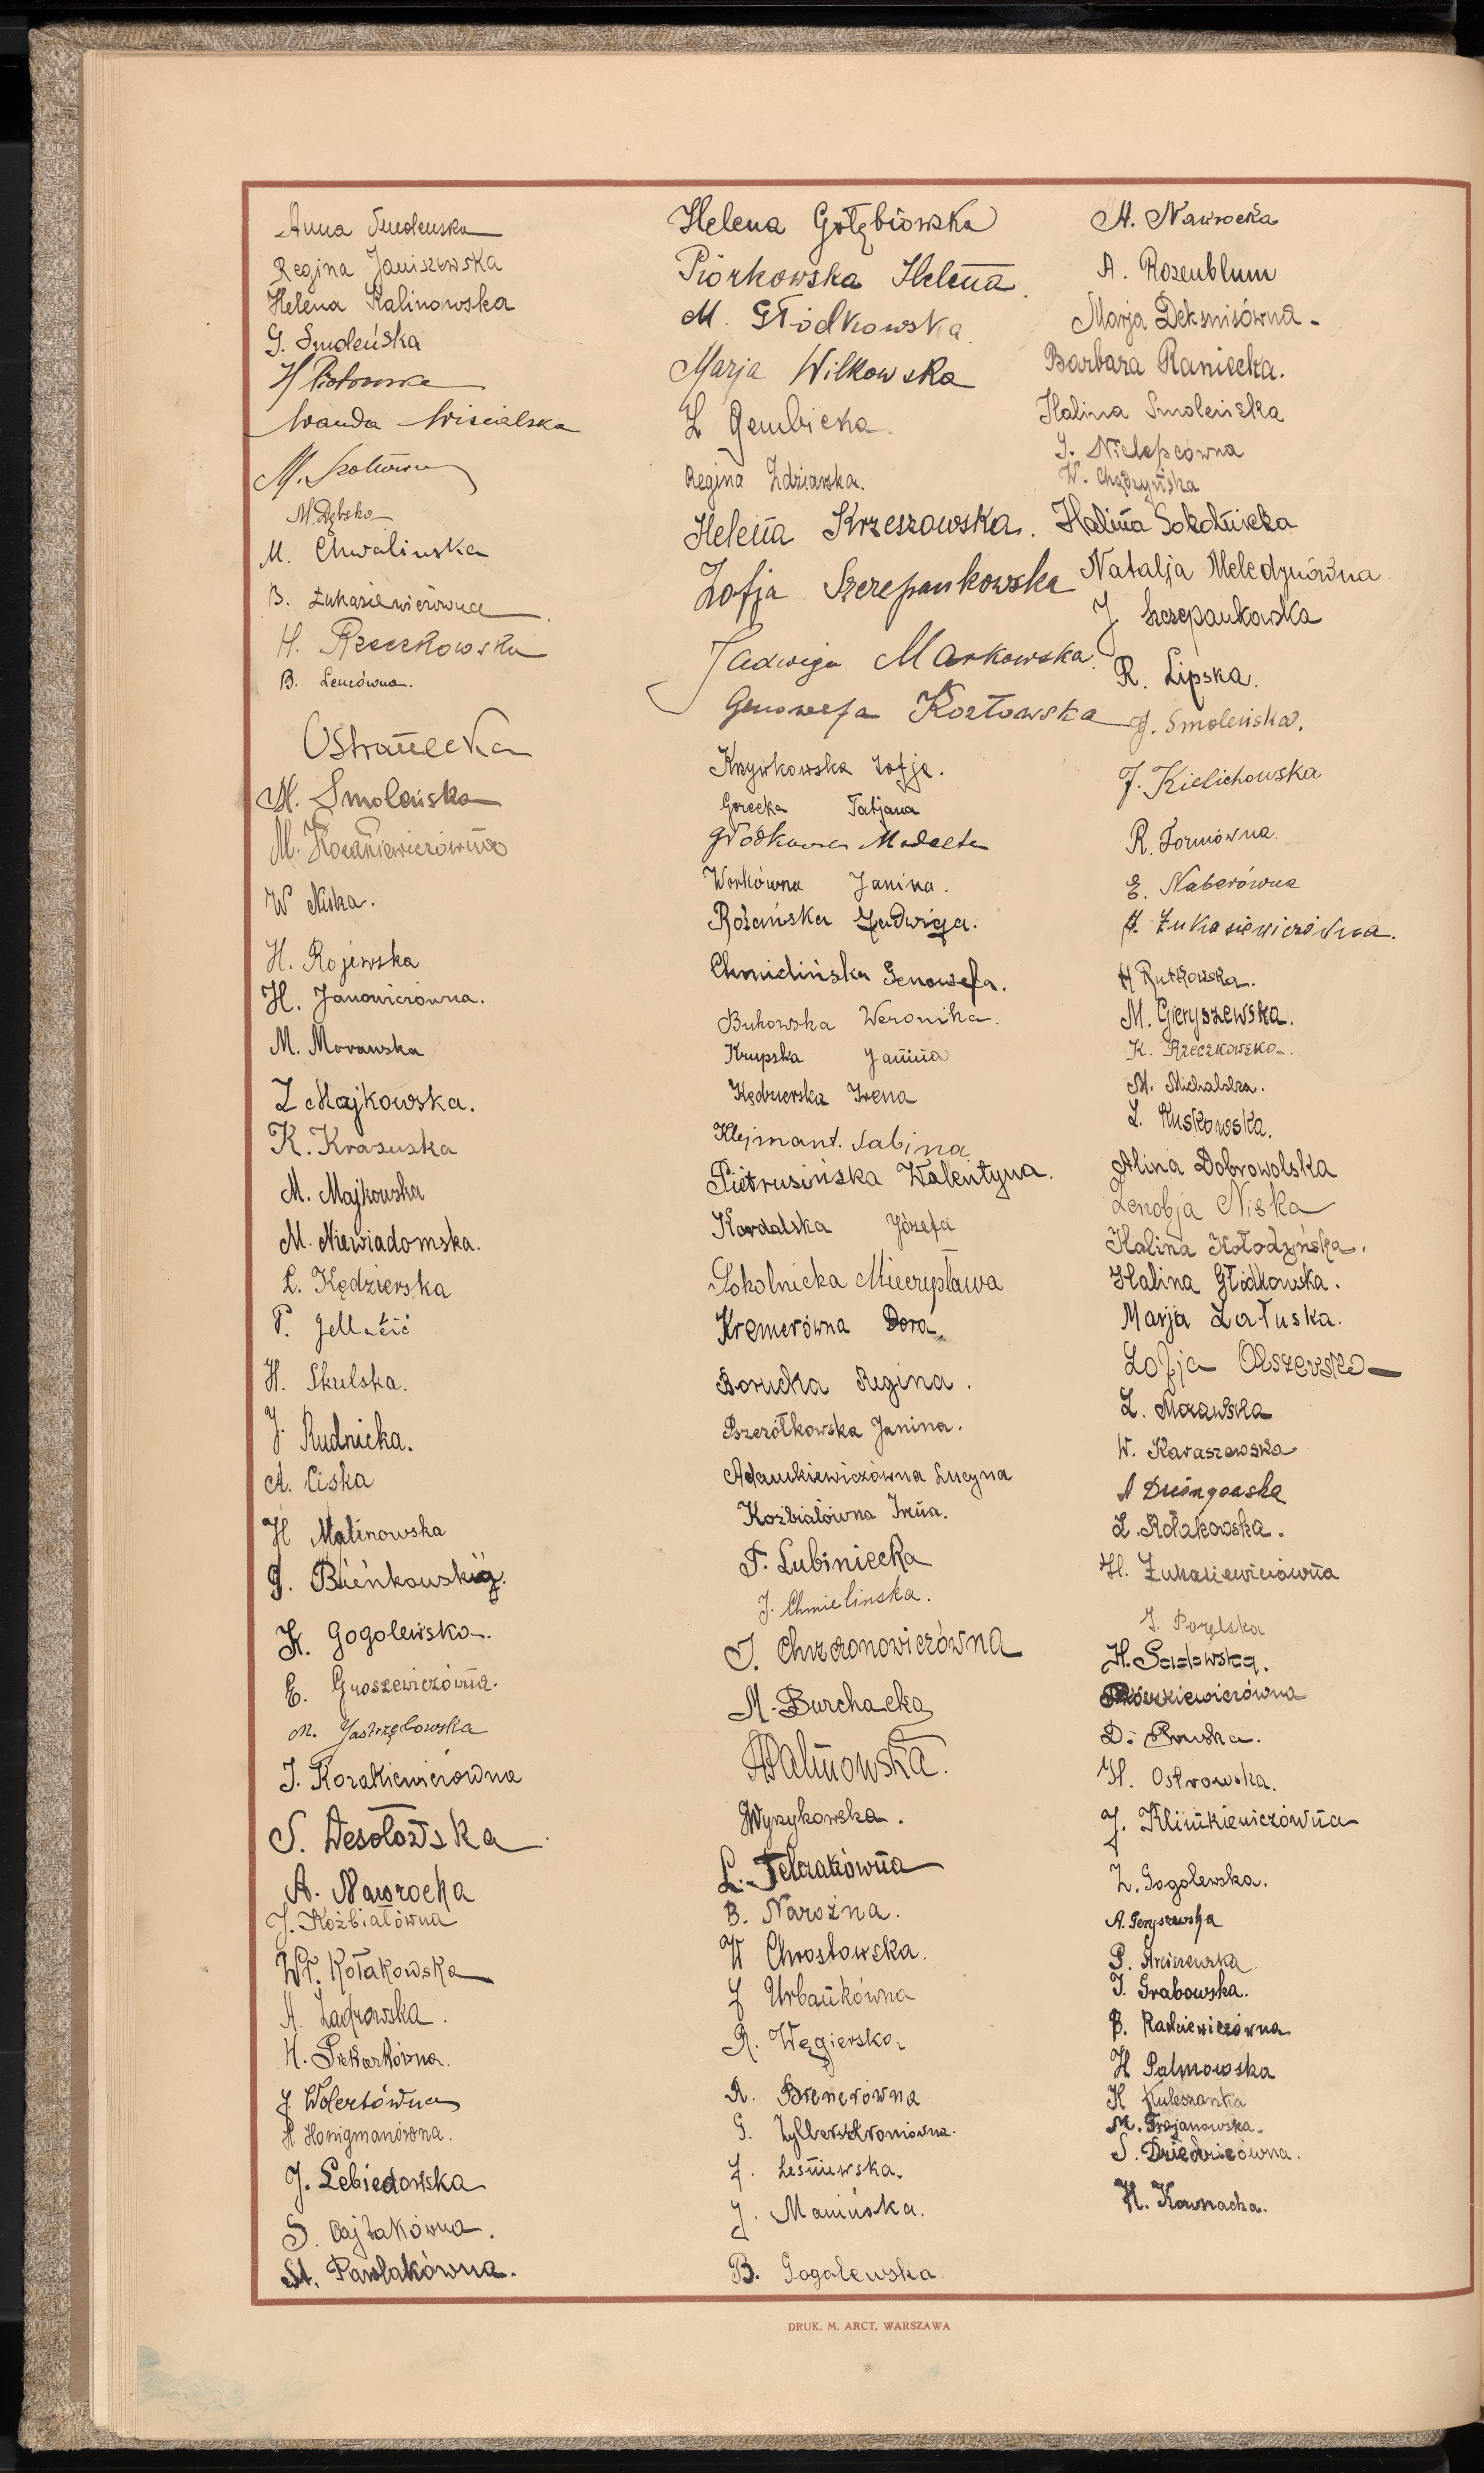 Anna Smoleńska
Regina Janiszewska
Helena Kalinowska
G. Smoleńska
H Piotrowska
Wanda Wiscialska
M.
M. Dębska
M. Chwalinska
B. Łukasiewiczówna
H. Rzeczkowska
B. Lencówna.
Ostaniecka
M. Smoleńska
M.
W Niska.
H. Rojewska
H. Janowiczówna.
M. Morawska
Z Majkowska.
K. Krasuska
M. Majkowska
M. Niewiadomska.
L. Kędzierska
P.
H. Skulska.
J. Rudnicka.
A. Ciska
H Malinowska
J. Bieńkowska.
K. Gogolewska.
E. Groszewiczówna.
M. Jastrzębowska
J. Kozakiewiczówna
S. Wesołowska
A. Nawrocka
J. Koźbiałówna
Wł. Kołakowska
A. Zadrowska.
H. Piekarkówna.
J Wolertówna
H Honigmanówna.
J. Lebiedowska
S. Cajtakówna.
St. Pawlakówna.
Helena Gołębiowska
Piórkowska Helena.
M. Głódkowska
Marja Wilkowska
Z Gembicka.
Regina Zdziarska.
Helena Krzeszowska.
Zofja Szczepankowska
Jadwiga Markowska.
Genowefa Kozłowska
Krzywkowska Zofja.
Gorecka Tatjana
Głódkowska
Workówna Janina.
Rożańska Jadwiga.
Chmielińska Genowefa.
Bukowska Weronika.
Krupska Janina
Kędzierska Irena
Klejmant. Sabina
Pietrusińska Walentyna.
Kowalska Józefa
Sokolnicka Mieczysława
Kremerówna Dora.
Borucka Regina.
Pszczółkowska Janina.
Adamkiewiczówna Lucyna
Koźbiałówna Irena.
F. Lubiniecka
J. Chmielinska.
J. Chrzanowiczówna
M. Burchacka
HPalmowska.
JWyrzykowska.
L. Felczakówna
B. Narożna.
W Chrostowska.
J Urbankówna
R. Węgierska
R. Brenerówna
G. Zylbersztromówna.
J. Leśniewska.
J. Manińska.
B. Gogolewska
M. Nawrocka
A. Rozenblum
Marja Deksnisówna.
Barbara Raniecka.
Halina Smoleńska
J. Nielepcówna
W. Chądzyńska
Halina Sokolnicka
Natalja Meledynówna
J Szczepankowska
R. Lipska.
J. Smoleńska.
J. Kielichowska
R. Formówna.
E. Naberówna
J. Łukasiewiczówna.
H Rutkowska.
M. Gieryszewska.
K. Rzeczkowska.
M. Michalska.
L. Ruskowska.
Alina Dobrowolska
Zenobja Niska
Halina Kołodzyńska.
Halina Głódkowska.
Marja Załuska.
Zofja Olszewska
Z. Morawska
W. Karaszewska
A Dwóngowska
Z. Kołakowska.
H. Łukasiewiczówna
J. Porębska
H. Sadowska.
D. Pruska.
H. Ostrowska.
J. Klimkiewiczówna
Z. Gogolewska.
A. Geryszewska
P.
J. Grabowska.
B. Radziewiczówna
H Palmowska
K Kuleszanka
M. Trojanowska.
S. Dziedzicówna.
H. Kownacka.
DRUK. M. ARCT, WARSZAWA